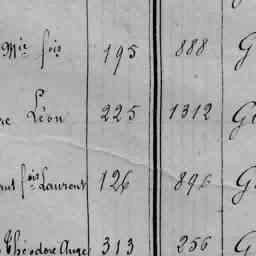 Mie fois 195 888 G
re Léon 225 1312 G
fois Laurent 126 896 G
Théodore Ange 313 256 G